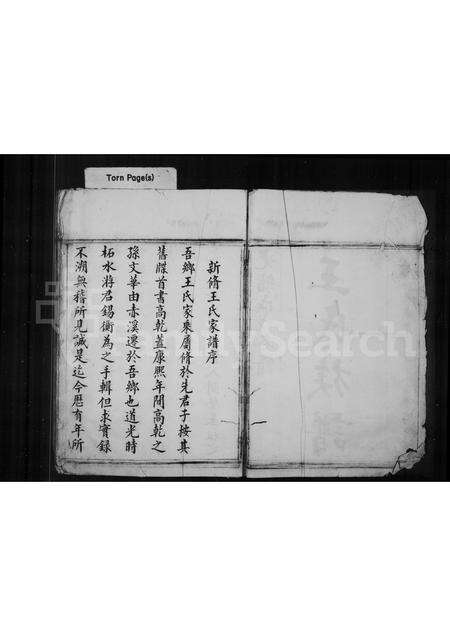 Torn Page(s)
新脩王氏家譜序
吾鄉王氏家乘屬脩於先君子按其
舊牒首書高乾蓋康熙年間高乾之
孫文華由赤溪遷於吾鄉也道光時
柘水蔣君錫衡為之手輯但求實錄
不溯無稽所見誠是迄今歷有年所
FamilySearch